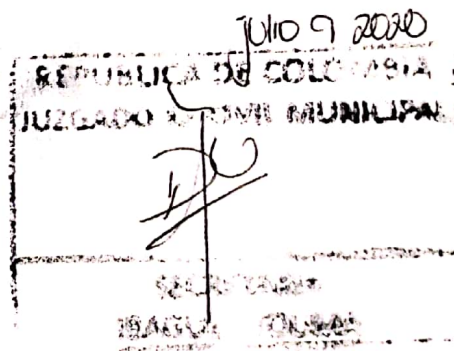 JULIO 9 2020
REPUBLICA DE COLOMBIA
JUZGADO CIVIL MUNICIPAL
SECRETARIA
IBAGUE